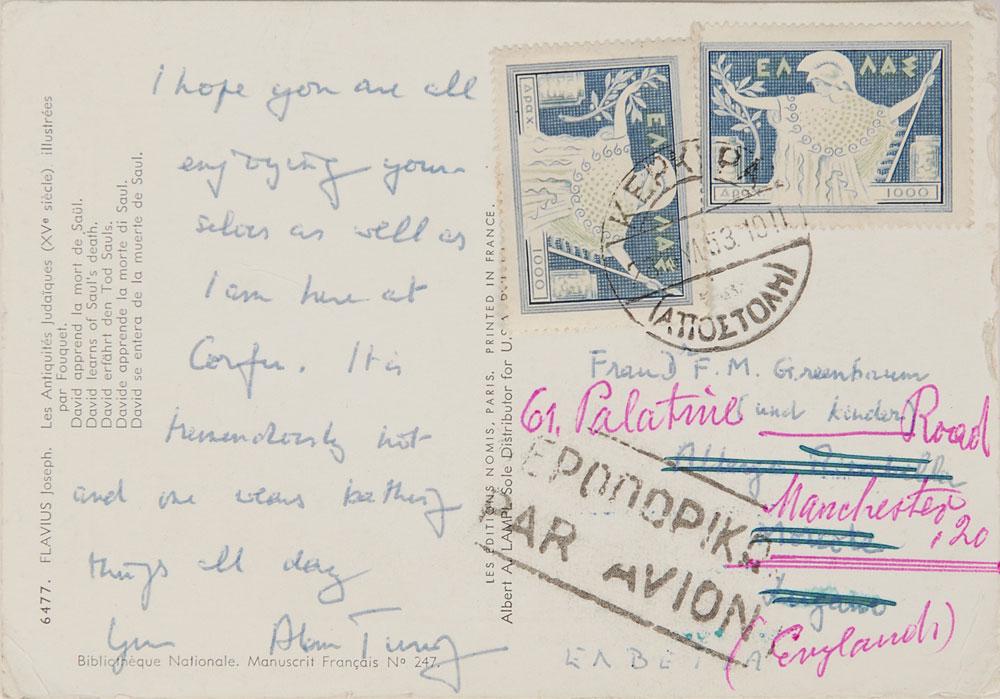 6477. FLAVIUS Joseph. Les Antiquités Judaïques (XVe siècle) illustrées
par Fouquet.
David apprend la mort de Saül.
David learns of Saul's death.
David erfährt den Tod Sauls.
Davide apprende la morte di Saul.
David se entera de la muerte de Saul.
I hope you are all
enjoying your-
selves as well as
I am here at
Corfu. It is
tremendously hot
and one wears bathing
things all day
Yours Alan Turing
Bibliothèque Nationale. Manuscrit Français No 247.
LES ÉDITIONS NOMIS, PARIS. PRINTED IN FRANCE.
Albert A. LAMPL Sole Distributor for U.S.A.
ΕΛΛΑΣ
ΔΡΑΧ
1000
ΕΛΛΑΣ
ΔΡΑΧ
1000
ΚΕΡΚΥΡΑ
VII.53.10
(ΑΠΟΣΤΟΛΗ)
Frau Dr F. M. Greenbaum
(und Kinder)
61. Palatine Road
Manchester, 20
(England)
ΕΡΟΠΟΡΙΚΩ
PAR AVION
ΕΛΒΕΤΙΑ